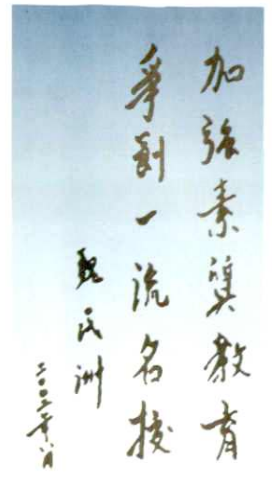 加強素質教育
爭創一流名校
魏民洲
二〇〇二年八月